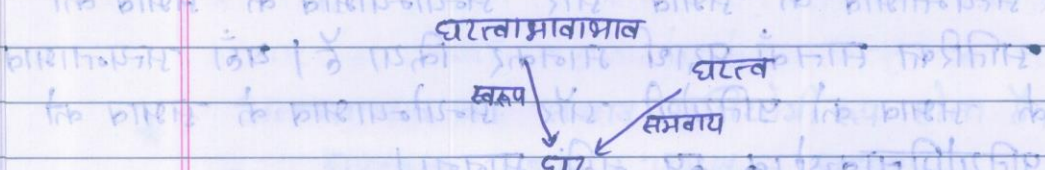 घटत्वाभावाभाव
घटत्व
स्वरूप
समवाय
घट